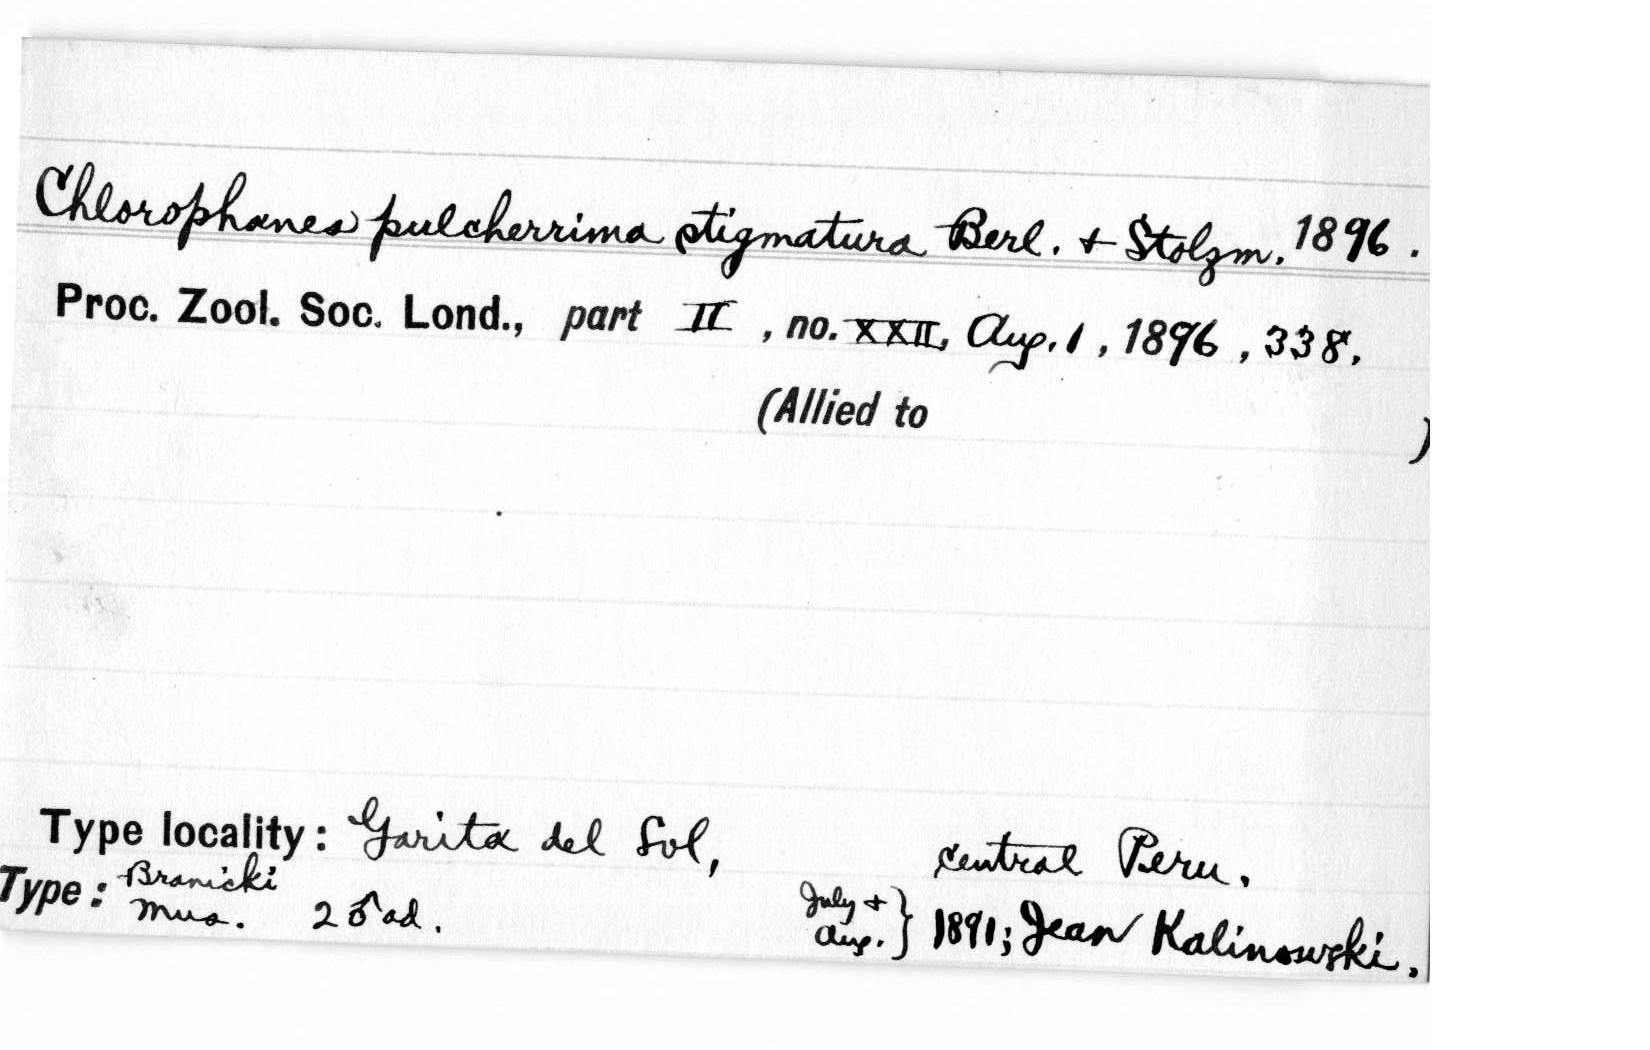 Chlorophanes pulcherrima stigmatura Berl. & Stolzm. 1896.
Proc. Zool. Soc. Lond., part II, no. XXII, Aug. 1, 1896, 338.
(Allied to )
Type locality: Garita del Sol, central Peru.
Type: Branicki Mus. 2 ♂ ad. July & Aug. } 1891; Jean Kalinowski.